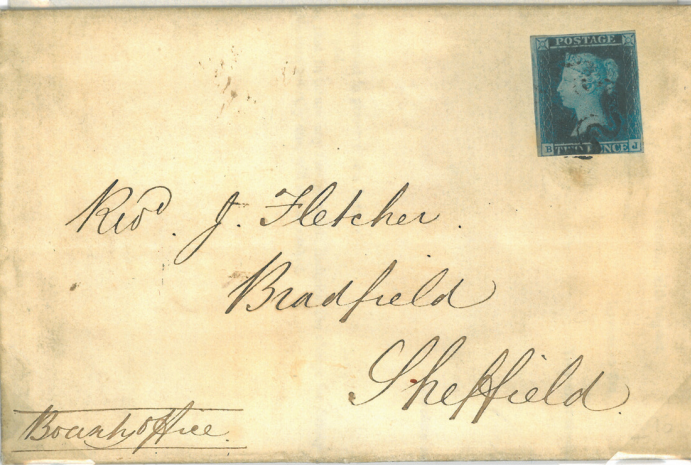 POSTAGE
B TWO PENCE J
Revd. J. Fletcher.
Bradfield
Sheffield.
office